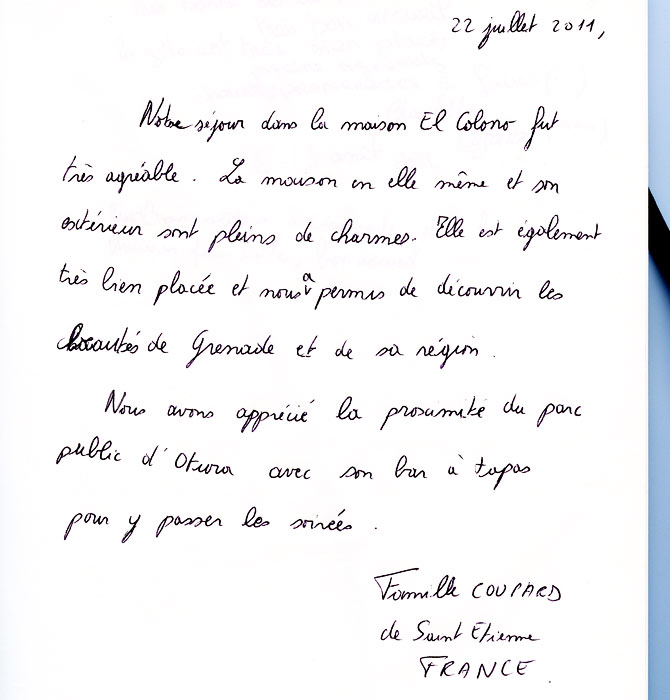 22 juillet 2011,
Notre séjour dans la maison El Colono fut
très agréable. La maison en elle même et son
extérieur sont pleins de charmes. Elle est également
très bien placée et nous a permis de découvrir les
beautés de Grenade et de sa région.
Nous avons apprécié la proximité du parc
public d'Otura avec son bar à tapas
pour y passer les soirées.
Famille COUPARD
de Saint Etienne
FRANCE